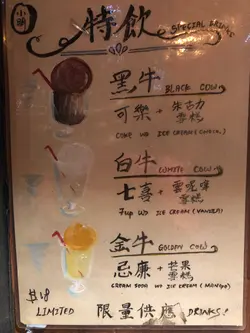 小明
特飲
SPECIAL DRINKS
黑牛 BLACK COW
可樂 + 朱古力雪糕
COKE W/D ICE CREAM (CHOCO.)
白牛 WHITE COW
七喜 + 雲呢嗱雪糕
7up W/D ICE CREAM (VANILLA)
金牛 GOLDEN COW
忌廉 + 芒果雪糕
CREAM SODA W/D ICE CREAM (MANGO)
LIMITED 限量供應 DRINKS!